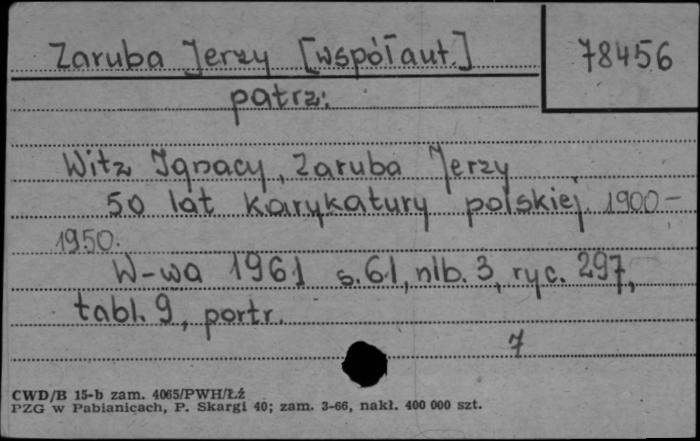 Zaruba Jerzy [współaut.]
78456
patrz:
Witz Ignacy, Zaruba Jerzy
50 lat karykatury polskiej 1900-
1950.
W-wa 1961 s. 61, nlb. 3, ryc. 297,
tabl. 9, portr.
7
CWD/B 15-b zam. 4065/PWH/Łź
PZG w Pabianicach, P. Skargi 40; zam. 3-66, nakł. 400 000 szt.